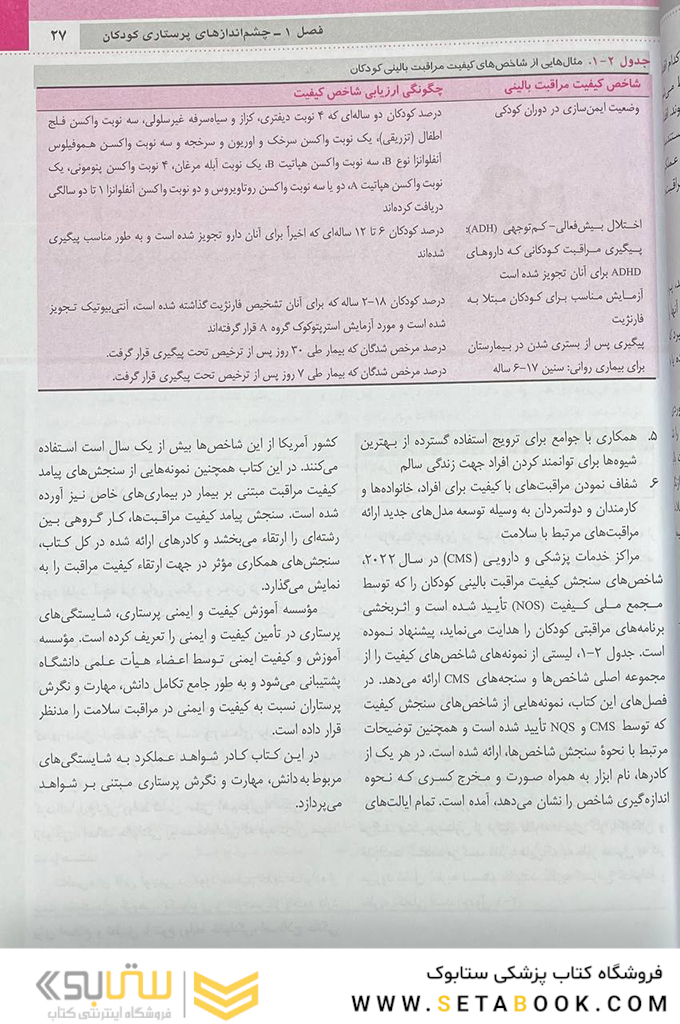 فصل ۱ ـ چشم‌اندازهای پرستاری کودکان
۲۷
جدول ۲–۱. مثال‌هایی از شاخص‌های کیفیت مراقبت بالینی کودکان
شاخص کیفیت مراقبت بالینی
چگونگی ارزیابی شاخص کیفیت
وضعیت ایمن‌سازی در دوران کودکی
درصد کودکان دو ساله‌ای که ۴ نوبت دیفتری، کزاز و سیاه‌سرفه غیرسلولی، سه نوبت واکسن فلج
اطفال (تزریقی)، یک نوبت واکسن سرخک و اوریون و سرخجه و سه نوبت واکسن هموفیلوس
آنفلوانزا نوع B، سه نوبت واکسن هپاتیت B، یک نوبت آبله مرغان، ۴ نوبت واکسن پنومونی، یک
نوبت واکسن هپاتیت A، دو یا سه نوبت واکسن روتاویروس و دو نوبت واکسن آنفلوانزا ۱ تا دو سالگی
دریافت کرده‌اند
اختلال بیش‌فعالی- کم‌توجهی (ADH):
پیگیری مراقبت کودکانی که داروهای
ADHD برای آنان تجویز شده است
درصد کودکان ۶ تا ۱۲ ساله‌ای که اخیراً برای آنان دارو تجویز شده است و به طور مناسب پیگیری
شده‌اند
آزمایش مناسب برای کودکان مبتلا به
فارنژیت
درصد کودکان ۱۸-۲ ساله که برای آنان تشخیص فارنژیت گذاشته شده است، آنتی‌بیوتیک تجویز
شده است و مورد آزمایش استرپتوکوک گروه A قرار گرفته‌اند
پیگیری پس از بستری شدن در بیمارستان
برای بیماری روانی: سنین ۱۷-۶ ساله
درصد مرخص شدگان که بیمار طی ۳۰ روز پس از ترخیص تحت پیگیری قرار گرفت.
درصد مرخص شدگان که بیمار طی ۷ روز پس از ترخیص تحت پیگیری قرار گرفت.
۵. همکاری با جوامع برای ترویج استفاده گسترده از بهترین
شیوه‌ها برای توانمند کردن افراد جهت زندگی سالم
۶. شفاف نمودن مراقبت‌های با کیفیت برای افراد، خانواده‌ها و
کارمندان و دولتمردان به وسیله توسعه مدل‌های جدید ارائه
مراقبت‌های مرتبط با سلامت
مراکز خدمات پزشکی و دارویی (CMS) در سال ۲۰۲۲،
شاخص‌های سنجش کیفیت مراقبت بالینی کودکان را که توسط
مجمع ملی کیفیت (NOS) تأیید شده است و اثربخشی
برنامه‌های مراقبتی کودکان را هدایت می‌نماید، پیشنهاد نموده
است. جدول ۲–۱، لیستی از نمونه‌های شاخص‌های کیفیت را از
مجموعه اصلی شاخص‌ها و سنجه‌های CMS ارائه می‌دهد. در
فصل‌های این کتاب، نمونه‌هایی از شاخص‌های سنجش کیفیت
که توسط CMS و NQS تأیید شده است و همچنین توضیحات
مرتبط با نحوهٔ سنجش شاخص‌ها، ارائه شده است. در هر یک از
کادرها، نام ابزار به همراه صورت و مخرج کسری که نحوه
اندازه‌گیری شاخص را نشان می‌دهد، آمده است. تمام ایالت‌های
کشور آمریکا از این شاخص‌ها بیش از یک سال است استفاده
می‌کنند. در این کتاب همچنین نمونه‌هایی از سنجش‌های پیامد
کیفیت مراقبت مبتنی بر بیمار در بیماری‌های خاص نیز آورده
شده است. سنجش پیامد کیفیت مراقبت‌ها، کار گروهی بین
رشته‌ای را ارتقاء می‌بخشد و کادرهای ارائه شده در کل کتاب،
سنجش‌های همکاری مؤثر در جهت ارتقاء کیفیت مراقبت را به
نمایش می‌گذارد.
مؤسسه آموزش کیفیت و ایمنی پرستاری، شایستگی‌های
پرستاری در تأمین کیفیت و ایمنی را تعریف کرده است. مؤسسه
آموزش و کیفیت ایمنی توسط اعضاء هیأت علمی دانشگاه
پشتیبانی می‌شود و به طور جامع تکامل دانش، مهارت و نگرش
پرستاران نسبت به کیفیت و ایمنی در مراقبت سلامت را مدنظر
قرار داده است.
در این کتاب کادر شواهد عملکرد به شایستگی‌های
مربوط به دانش، مهارت و نگرش پرستاری مبتنی بر شواهد
می‌پردازد.
فروشگاه کتاب پزشکی ستابوک
WWW.SETABOOK.COM
ستابوک
فروشگاه اینترنتی کتاب